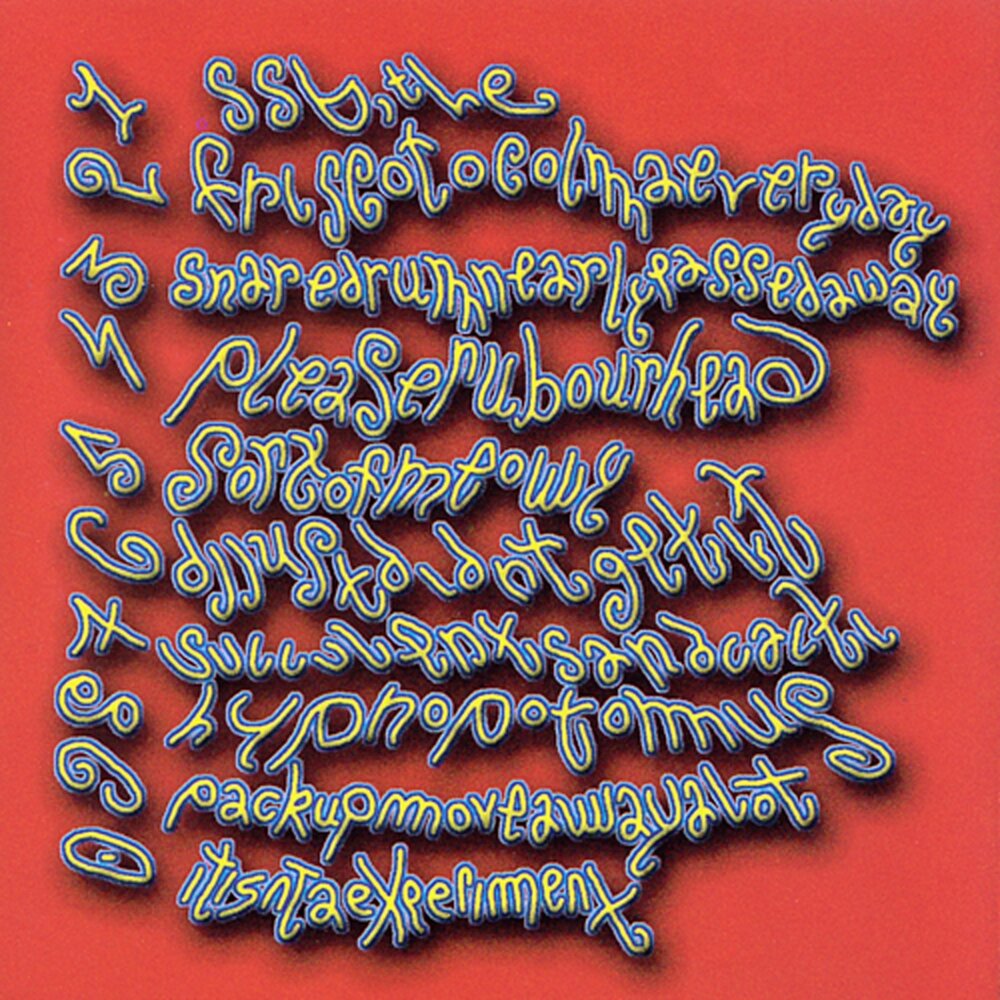 1 ssb,the
2 friscotocolmaeveryday
3 snaredrumnearlypassedaway
4 pleaserubourhead
5 sortofmeowy
6
7 succulentsandcacti
8 hypnopotommus
9 packupmoveawayalot
0 itisntaexperiment